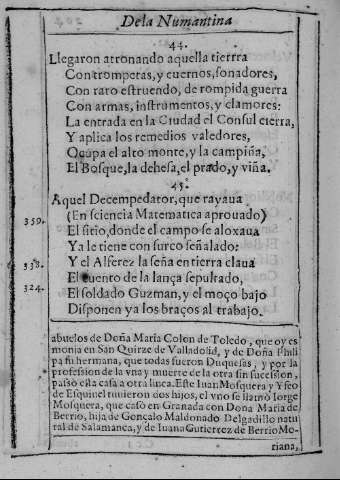 De la Numantina
44.
Llegaron atronando aquella tierrra
Con trompetas, y cuernos, sonadores,
Con raro estruendo, de rompida guerra
Con armas, instrumentos, y clamores:
La entrada en la Ciudad el Consul cierra,
Y aplica los remedios valedores,
Ocupa el alto monte, y la campiña,
El Bosque, la dehesa, el prado, y viña.
45.
Aquel Decempedator, que rayaua
(En sciencia Matematica aprouado)
339. El sitio, donde el campo se aloxaua
Ya le tiene con surco señalado:
338. Y el Alferez la seña en tierra claua
El cuento de la lança sepultado,
324. El soldado Guzman, y el moço bajo
Disponen ya los braços al trabajo.
abuelos de Doña Maria Colon de Toledo, que oy es
monia en San Quirze de Valladolid, y de Doña Phili
pa su hermana, que todas fueron Duquesas, y por la
profession de la vna y muerte de la otra sin sucession,
passò esta casa a otra linea. Este Iuan Mosquera y Yseo
de Esquinel tuuieron dos hijos, el vno se llamò Iorge
Mosquera, que casò en Granada con Dona Maria de
Berrio, hija de Gonçalo Maldonado Delgadillo natu
ral de Salamanca, y de Iuana Gutierrez de Berrio Mo-
riana,